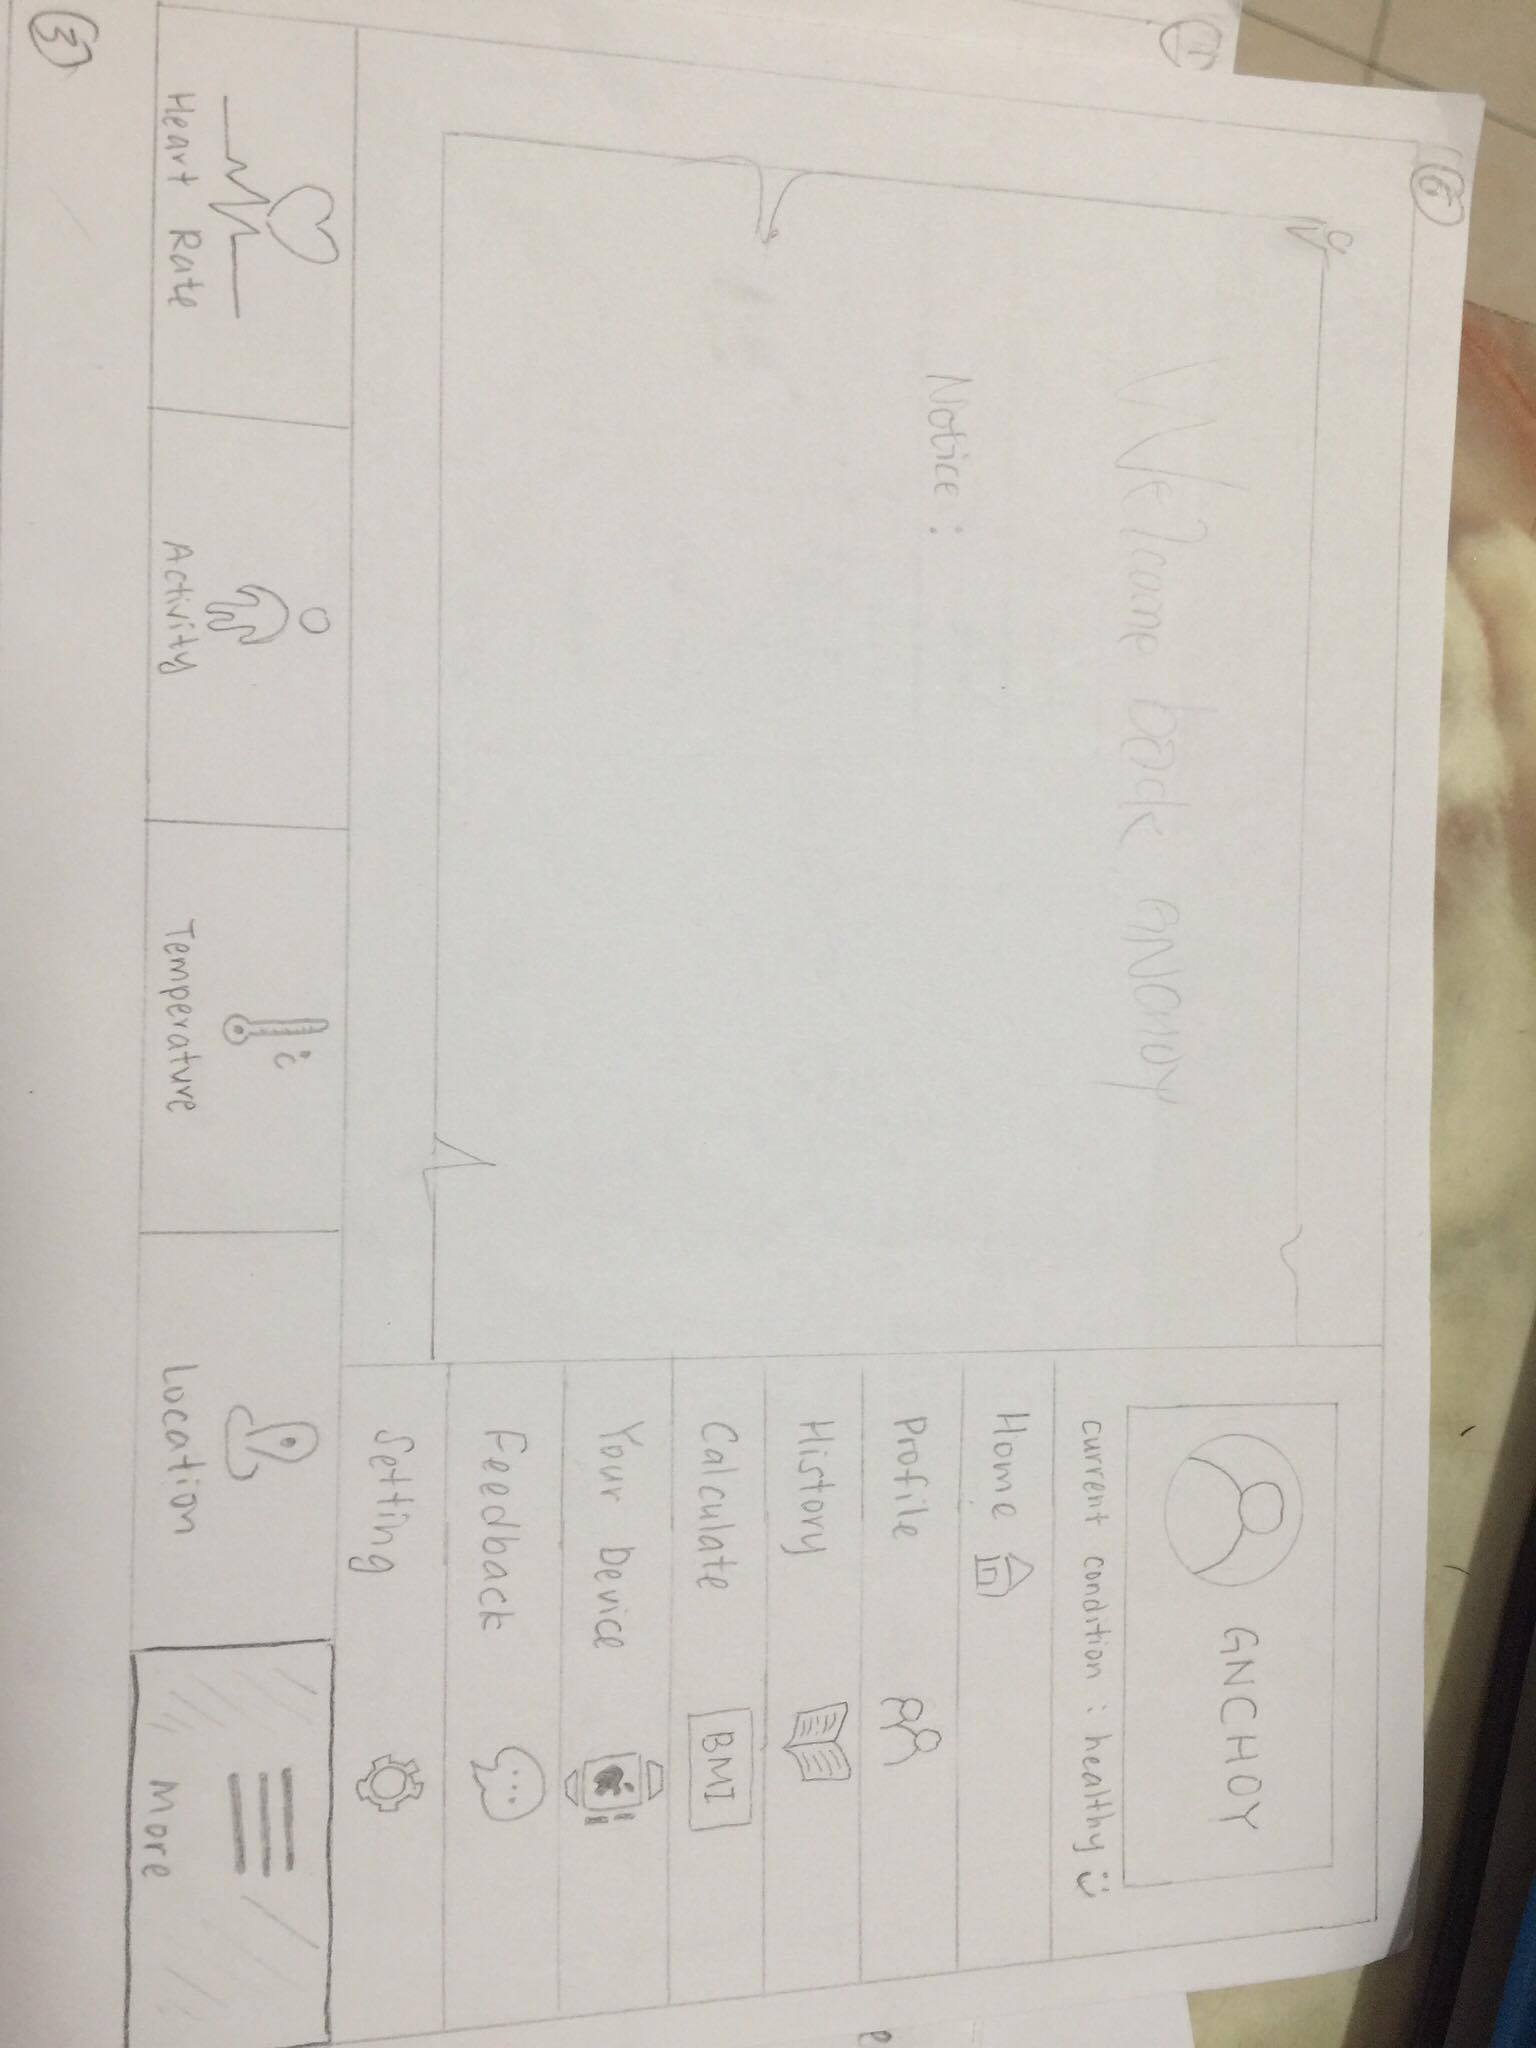 6
Welcome back GNCHOY
Notice :
GNCHOY
current condition : healthy
Home
Profile
History
Calculate BMI
Your Device
Feedback
Setting
Heart Rate
Activity
Temperature °C
Location
More
3